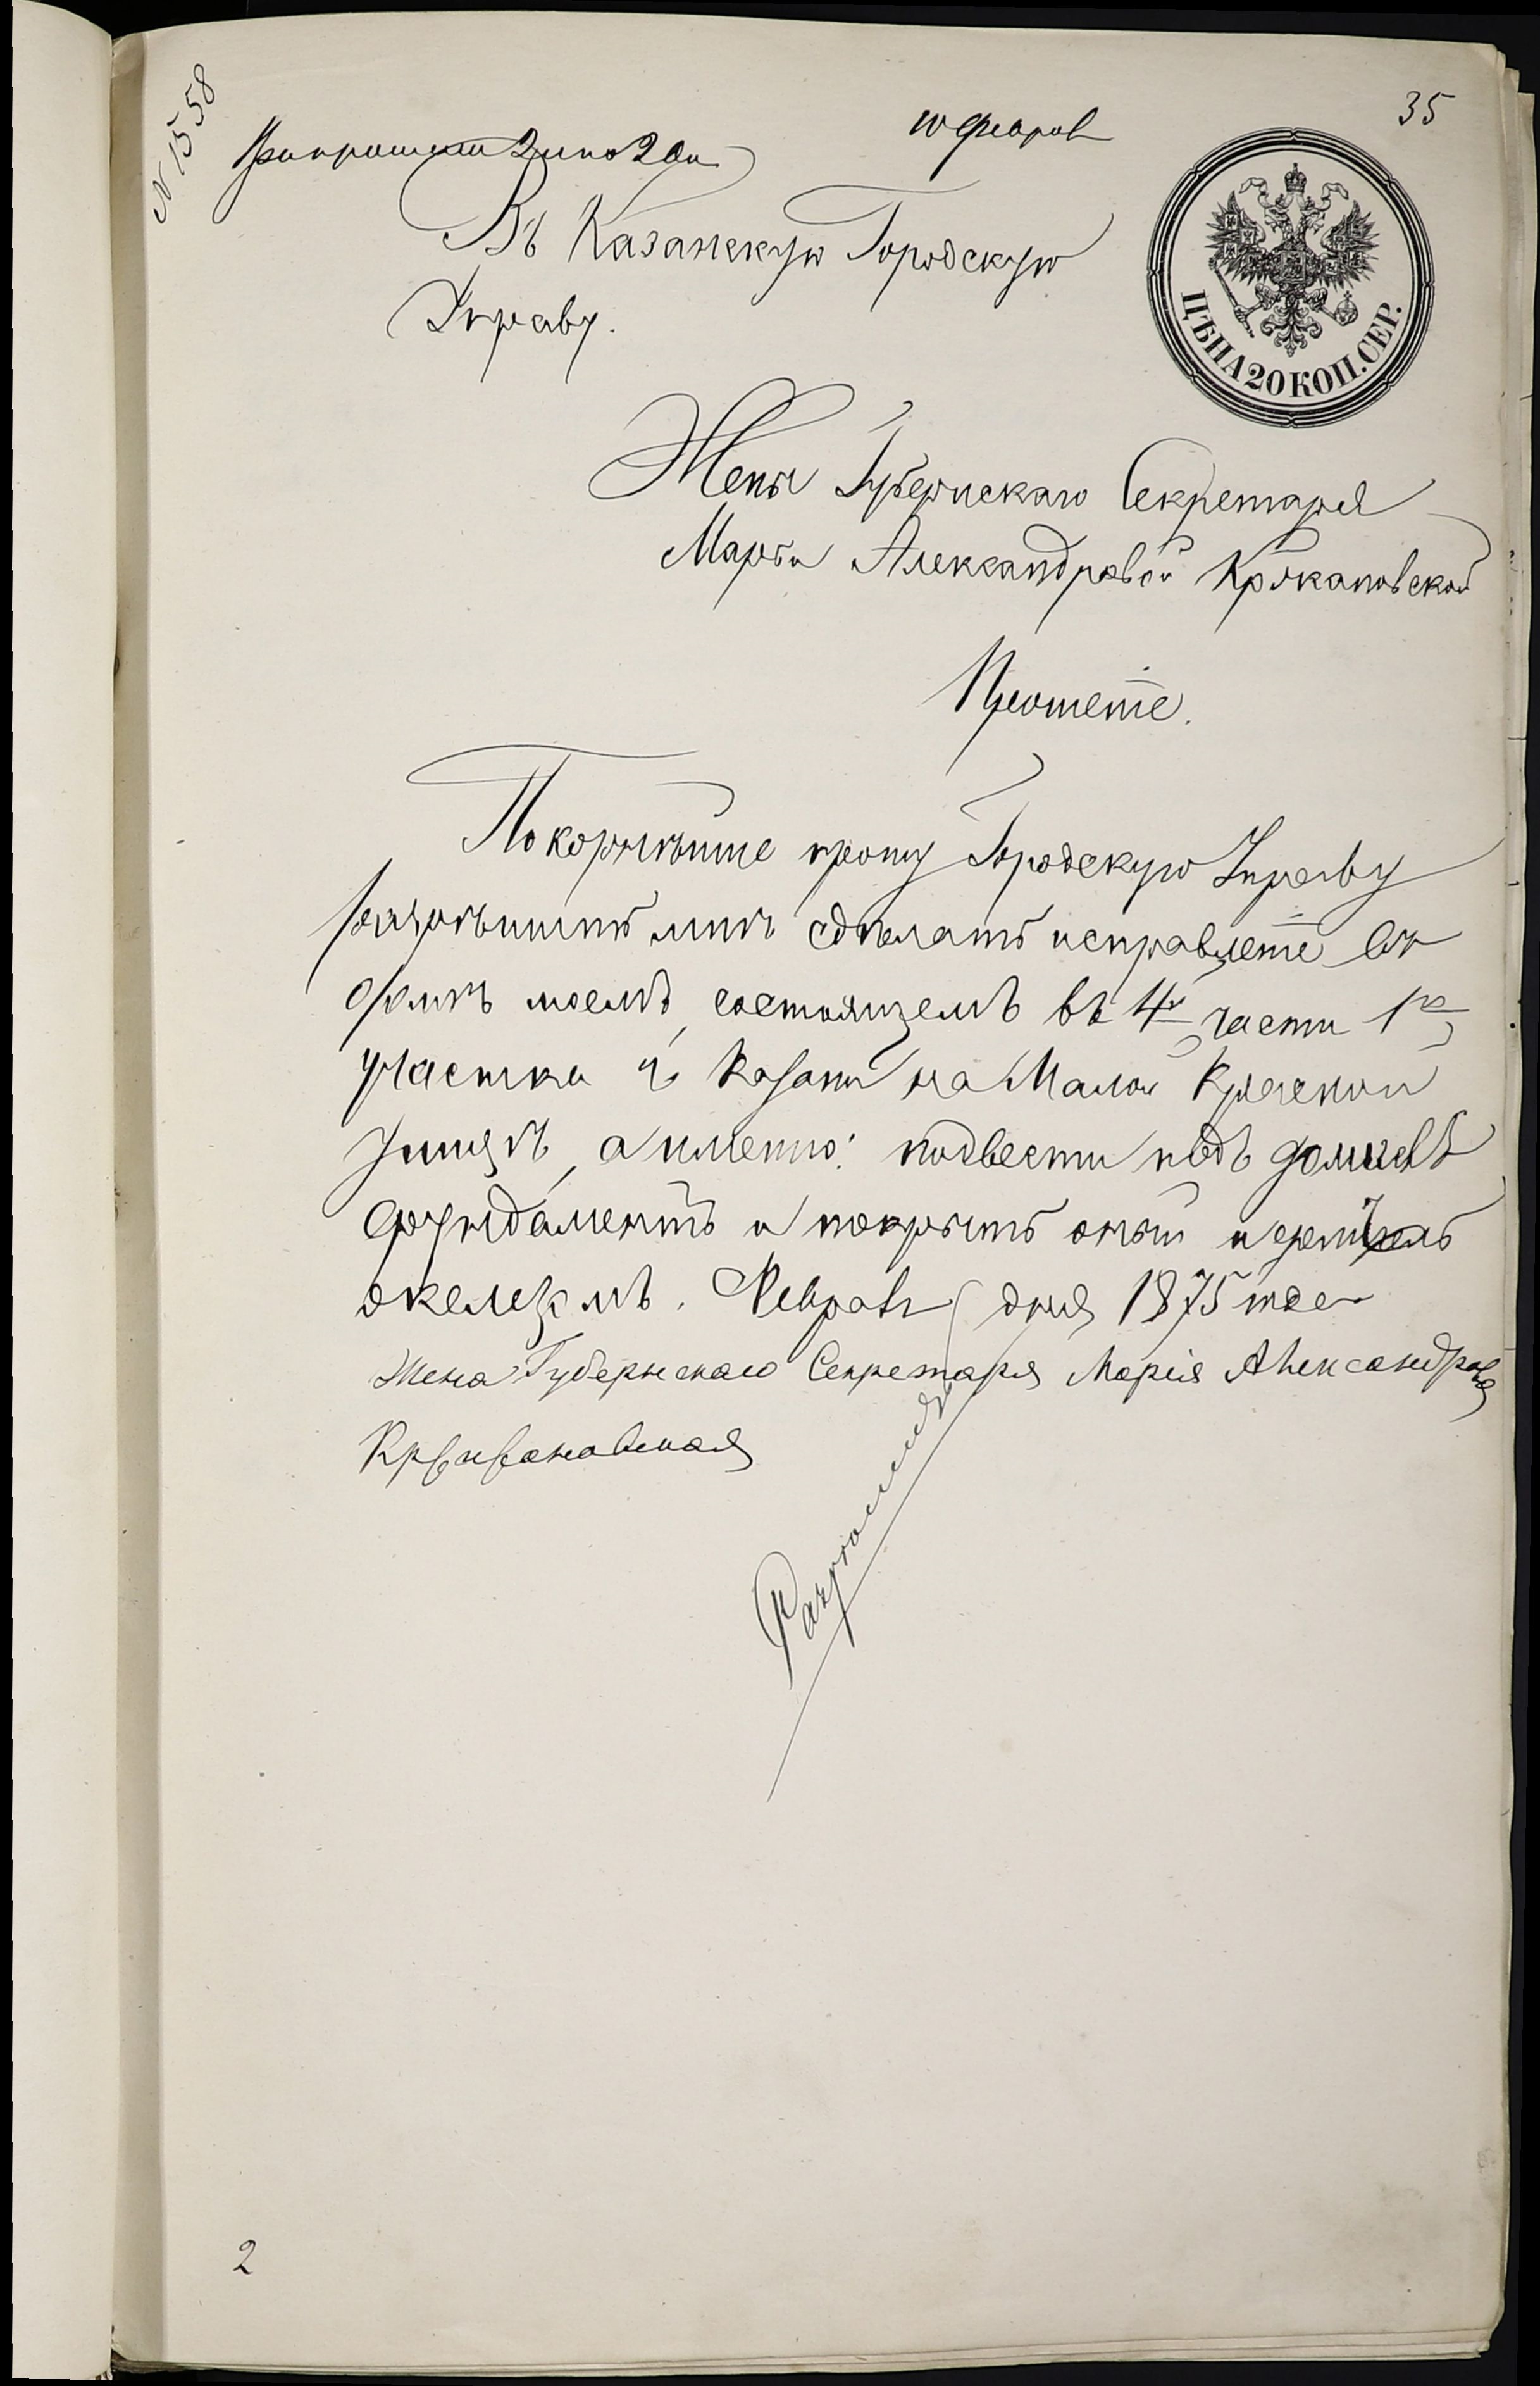 N 1558
10 Феврал
35
При прошении 2 л по 20 к
Въ Казанскую Городскую
Управу.
ЦѢНА 20 КОП. СЕР.
Жены Губернскаго Секретаря
Марьи Александровой
Прошеніе.
Покорнѣйше прошу Городскую Управу
разрѣшить мнѣ сдѣлать исправленіе въ
домѣ моемъ, состоящемъ въ 4й части 1го
участка г. Казани на Малой Красной
улицѣ, а именно: подвести подъ домъ
фундаментъ и покрыть оный
желѣзомъ. Февраля дня 1875 года
Жена Губернскаго Секретаря Марія Александрова
Разрѣшить
2